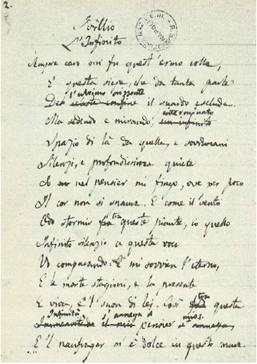 2.
Idillio
L'Infinito
Sempre caro mi fu quest'ermo colle,
E questa siepe, che da tanta parte
l'ultimo orizzonte
Del celeste confine il guardo esclude.
Ma sedendo e mirando, interminato
Spazio di là da quella, e sovrumani
Silenzi, e profondissima quiete
Io nel pensier mi fingo, ove per poco
Il cor non si spaura. E come il vento
Odo stormir tra queste piante, io quello
Infinito silenzio a questa voce
Vo comparando: E mi sovvien l'eterno,
E le morte stagioni, e la presente
E viva, e 'l suon di lei. Così tra questa
Infinità s'annega il pensier mio:
E 'l naufragar m'è dolce in questo mare.